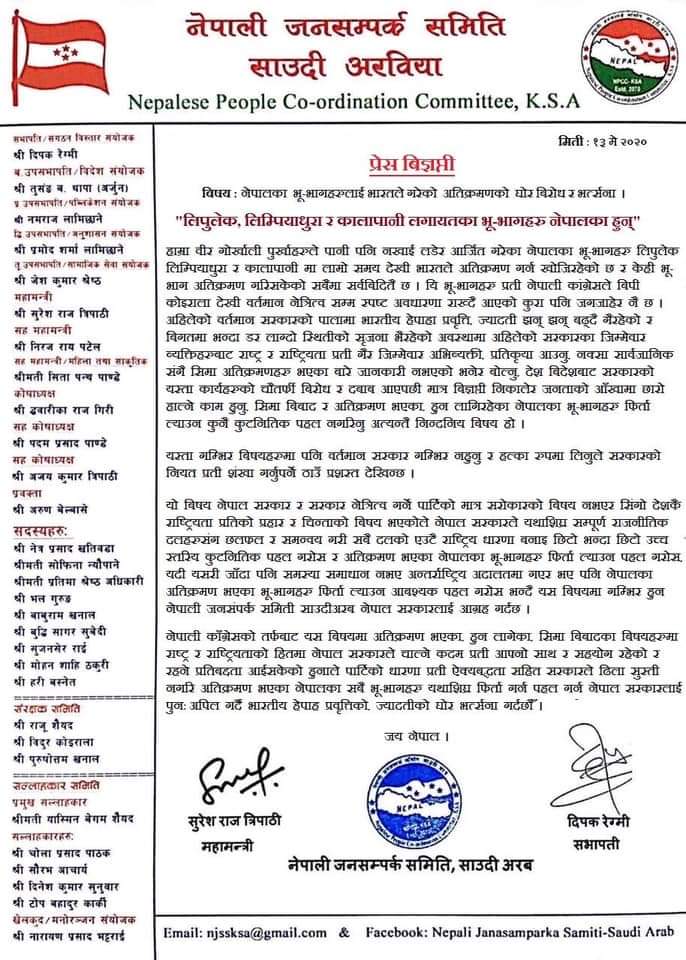 नेपाली जनसम्पर्क समिति
साउदी अरविया
Nepalese People Co-ordination Committee, K.S.A
NEPAL
NPCC-KSA
सभापति/संगठन विस्तार संयोजक
श्री दिपक रेग्मी
ब.उपसभापति/विदेश संयोजक
श्री तुसंङ ब. थापा (अर्जुन)
प्र उपसभापति/पब्लिकेशन संयोजक
श्री नमराज लामिछाने
द्वि उपसभापति/अनुशासन संयोजक
श्री प्रमोद शर्मा लामिछाने
तृ उपसभापति/सामाजिक सेवा संयोजक
श्री जेश कुमार श्रेष्ठ
महामन्त्री
श्री सुरेश राज त्रिपाठी
सह महामन्त्री
श्री निरज राय पटेल
सह महामन्त्री/महिला तथा सांकृतिक
श्रीमती सिता पन्थ पाण्डे
कोषाध्यक्ष
श्री द्वारीका राज गिरी
सह कोषाध्यक्ष
श्री पदम प्रसाद पाण्डे
सह कोषाध्यक्ष
श्री अजय कुमार त्रिपाठी
प्रवक्ता
श्री अरुण बेल्वासे
सदस्यहरु:
श्री नेत्र प्रसाद खतिवडा
श्रीमती सोफिना न्यौपाने
श्रीमती प्रतिमा श्रेष्ठ अधिकारी
श्री भल गुरुङ
श्री बाबुराम खनाल
श्री बुद्धि सागर सुवेदी
श्री सुजनसेर राई
श्री मोहन शाहि ठकुरी
श्री हरी बस्नेत
संरक्षक समिति
श्री राजू शैयद
श्री विदुर कोइराला
श्री पुरुषोतम खनाल
सल्लाहकार समिति
प्रमुख सल्लाहकार
श्रीमती यास्मिन बेगम शैयद
सल्लाकारहरु:
श्री चोला प्रसाद पाठक
श्री सौरभ आचार्य
श्री दिनेश कुमार सुनुवार
श्री टोप बहादुर कार्की
खेलकुद/मनोरञ्जन संयोजक
श्री नारायण प्रसाद भट्टराई
मिती : १३ मे २०२०
प्रेस बिज्ञप्ती
विषय : नेपालका भू-भागहरुलाई भारतले गरेको अतिक्रमणको घोर बिरोध र भर्त्सना ।
"लिपुलेक, लिम्पियाधुरा र कालापानी लगायतका भू-भागहरु नेपालका हुन्"
हाम्रा वीर गोर्खाली पुर्खाहरुले पानी पनि नखाई लडेर आर्जित गरेका नेपालका भू-भागहरु लिपुलेक
लिम्पियाधुरा र कालापानी मा लामो समय देखी भारतले अतिक्रमण गर्न खोजिरहेको छ र केही भू-
भाग अतिक्रमण गरिसकेको सबैमा सर्वबिदितै छ । यि भू-भागहरु प्रती नेपाली कांग्रेसले बिपी
कोइराला देखी वर्तमान नेत्रित्व सम्म स्पष्ट अवधारणा राख्दै आएको कुरा पनि जगजाहेर नै छ ।
अहिलेको वर्तमान सरकारको पालामा भारतीय हेपाहा प्रवृत्ति, ज्यादती झन् झन् बढ्दै गैरहेको र
बिगतमा भन्दा डर लाग्दो स्थितीको सृजना भैरहेको अवस्थामा अहिलेको सरकारका जिम्मेवार
व्यक्तिहरुबाट राष्ट्र र राष्ट्रियता प्रती गैर जिम्मेवार अभिव्यक्ती, प्रतिकृया आउनु, नक्सा सार्वजानिक
संगै सिमा अतिक्रमणहरु भएका बारे जानकारी नभएको भनेर बोल्नु, देश बिदेशबाट सरकारको
यस्ता कार्यहरुको चौतर्फी बिरोध र दबाब आएपछी मात्र बिज्ञप्ती निकालेर जनताको आँखामा छारो
हाल्ने काम हुनु, सिमा बिबाद र अतिक्रमण भएका, हुन लागिरहेका नेपालका भू-भागहरु फिर्ता
ल्याउन कुनै कुटनितिक पहल नगरिनु अत्यन्तै निन्दनिय बिषय हो ।
यस्ता गम्भिर बिषयहरुमा पनि वर्तमान सरकार गम्भिर नहुनु र हल्का रुपमा लिनुले सरकारको
नियत प्रती शंखा गर्नुपर्ने ठाउँ प्रशस्त देखिन्छ ।
यो बिषय नेपाल सरकार र सरकार नेत्रित्व गर्ने पार्टिको मात्र सरोकारको बिषय नभएर सिंगो देशकै
राष्ट्रियता प्रतिको प्रहार र चिन्ताको बिषय भएकोले नेपाल सरकारले यथाशिघ्र सम्पूर्ण राजनीतिक
दलहरुसंग छलफल र समन्वय गरी सबै दलको एउटै राष्ट्रिय धारणा बनाइ छिटो भन्दा छिटो उच्च
स्तरिय कुटनितिक पहल गरोस र अतिक्रमण भएका नेपालका भू-भागहरु फिर्ता ल्याउन पहल गरोस,
यदी यसरी जाँदा पनि समस्या समाधान नभए अन्तर्राष्ट्रिय अदालतमा गएर भए पनि नेपालका
अतिक्रमण भएका भू-भागहरु फिर्ता ल्याउन आवश्यक पहल गरोस भन्दै यस बिषयमा गम्भिर हुन
नेपाली जनसंपर्क समिती साउदीअरब नेपाल सरकारलाई आग्रह गर्दछ ।
नेपाली काँग्रेसको तर्फबाट यस बिषयमा अतिक्रमण भएका, हुन लागेका, सिमा बिबादका बिषयहरुमा
राष्ट्र र राष्ट्रियताको हितमा नेपाल सरकारले चाल्ने कदम प्रती आफ्नो साथ र सहयोग रहेको र
रहने प्रतिबद्धता आईसकेको हुनाले पार्टिको धारणा प्रती ऐक्यबद्धता सहित सरकारले ढिला सुस्ती
नगरि अतिक्रमण भएका नेपालका सबै भू-भागहरु यथाशिघ्र फिर्ता गर्न पहल गर्न नेपाल सरकारलाई
पुनः अपिल गर्दै भारतीय हेपाह प्रवृत्तिको, ज्यादतीको घोर भर्त्सना गर्दछौँ ।
जय नेपाल ।
NEPAL
सुरेश राज त्रिपाठी
महामन्त्री
दिपक रेग्मी
सभापती
नेपाली जनसम्पर्क समिति, साउदी अरब
Email: njssksa@gmail.com & Facebook: Nepali Janasamparka Samiti-Saudi Arab